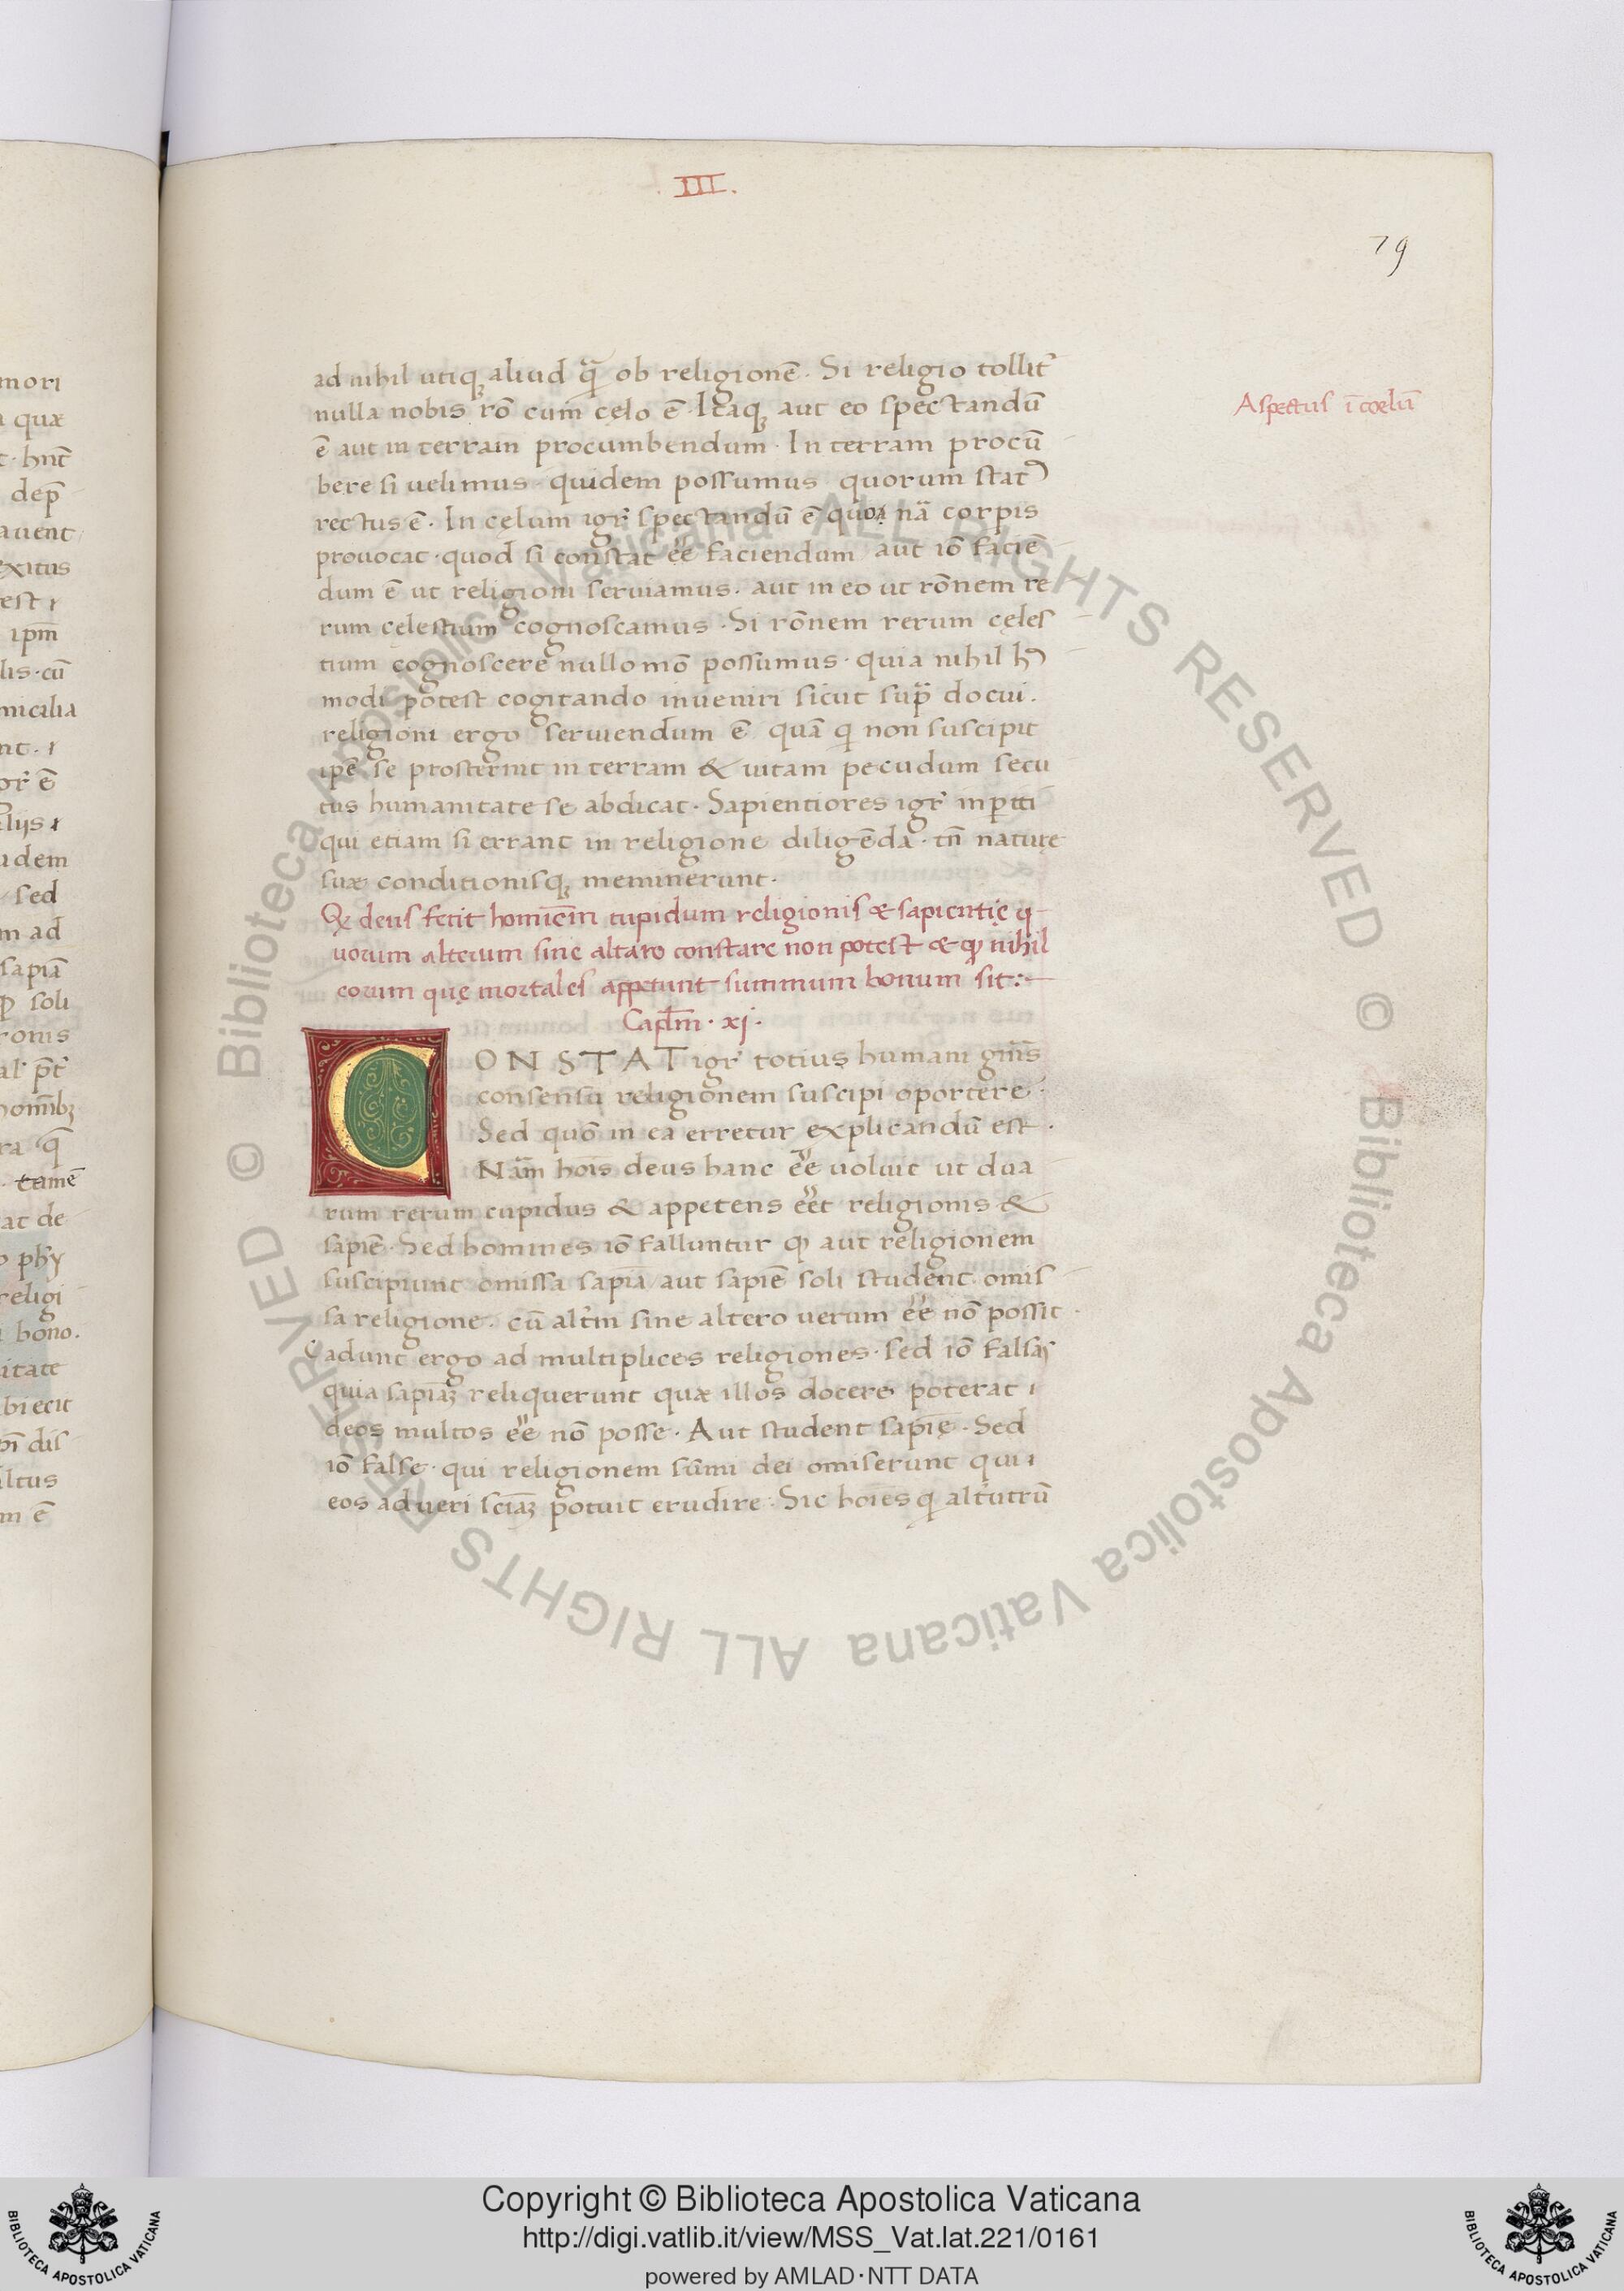 III.
79
ad nihil utiq; aliud qȃ ob religionē. Si religio tollit᷑
Aspectus ī cœlū
nulla nobis rō cum cęlo ē. Itaq; aut eo spectandū
ē aut in terram procumbendum. In terram procū
bere si uelimus. quidem possumus quorum stat᷒
rectus ē. In cęlum igr̄ spectandū ē quo nā corpis
prouocat. quod si constat ēē faciendum aut iō faciē
dum ē ut religioni seruiamus. aut in eo ut rōnem re
rum cęlestium cognoscamus. Si rōnem rerum cęles
tium cognoscere nullo mō possumus. quia nihil h᷒
modi potest cogitando inueniri sicut sup̄ docui.
religioni ergo seruiendum ē quā q non suscipit
ipē se prosternit in terram & uitam pecudum secu
tus humanitate se abdicat. Sapientiores igr̄ inpiti
qui etiam si errant in religione diligēda. tn̄ naturę
suæ conditionisq; meminerunt.
Q deus fecit hominem cupidum religionis & sapientię q
uorum alterum sine altaro constare non potest & q nihil
eorum quę mortales appetunt summum bonum sit:
Capl̄m. xi.
CONSTAT igr̄ totius humani gn̄is
consensu religionem suscipi oportere.
Sed quō in ea erretur explicandū est.
Nam hoīs deus hanc ēē uoluit ut dua
rum rerum cupidus & appetens ēēt religionis &
sapiē. Sed homines iō falluntur q aut religionem
suscipiunt omissa sapīa aut sapiē soli student omis
sa religione. cū alt̄m sine altero uerum ēē nō possit.
Cadunt ergo ad multiplices religiones. sed iō falsas
quia sapīaȝ reliquerunt quæ illos docere poterat
deos multos ēē nō posse. Aut student sapīę. Sed
iō falsę. qui religionem sūmi dei omiserunt qui
eos ad ueri scīaȝ potuit erudire. Sic hoīes q alt̄utrū
mori
quæ
hnt̄
dep̄
auent
exitus
est
ipm̄
lis. cū
micilia
nt.
gr̄ ē
lijs
dem
sed
m ad
sapīā
soli
ronis
tamē
at de
phy
religi
bono.
itate
biecit
dis
ltus
m ē
© Biblioteca Apostolica Vaticana ALL RIGHTS RESERVED © Biblioteca Apostolica Vaticana ALL RIGHTS RESERVED
BIBLIOTECA APOSTOLICA VATICANA
Copyright © Biblioteca Apostolica Vaticana
http://digi.vatlib.it/view/MSS_Vat.lat.221/0161
powered by AMLAD·NTT DATA
BIBLIOTECA APOSTOLICA VATICANA